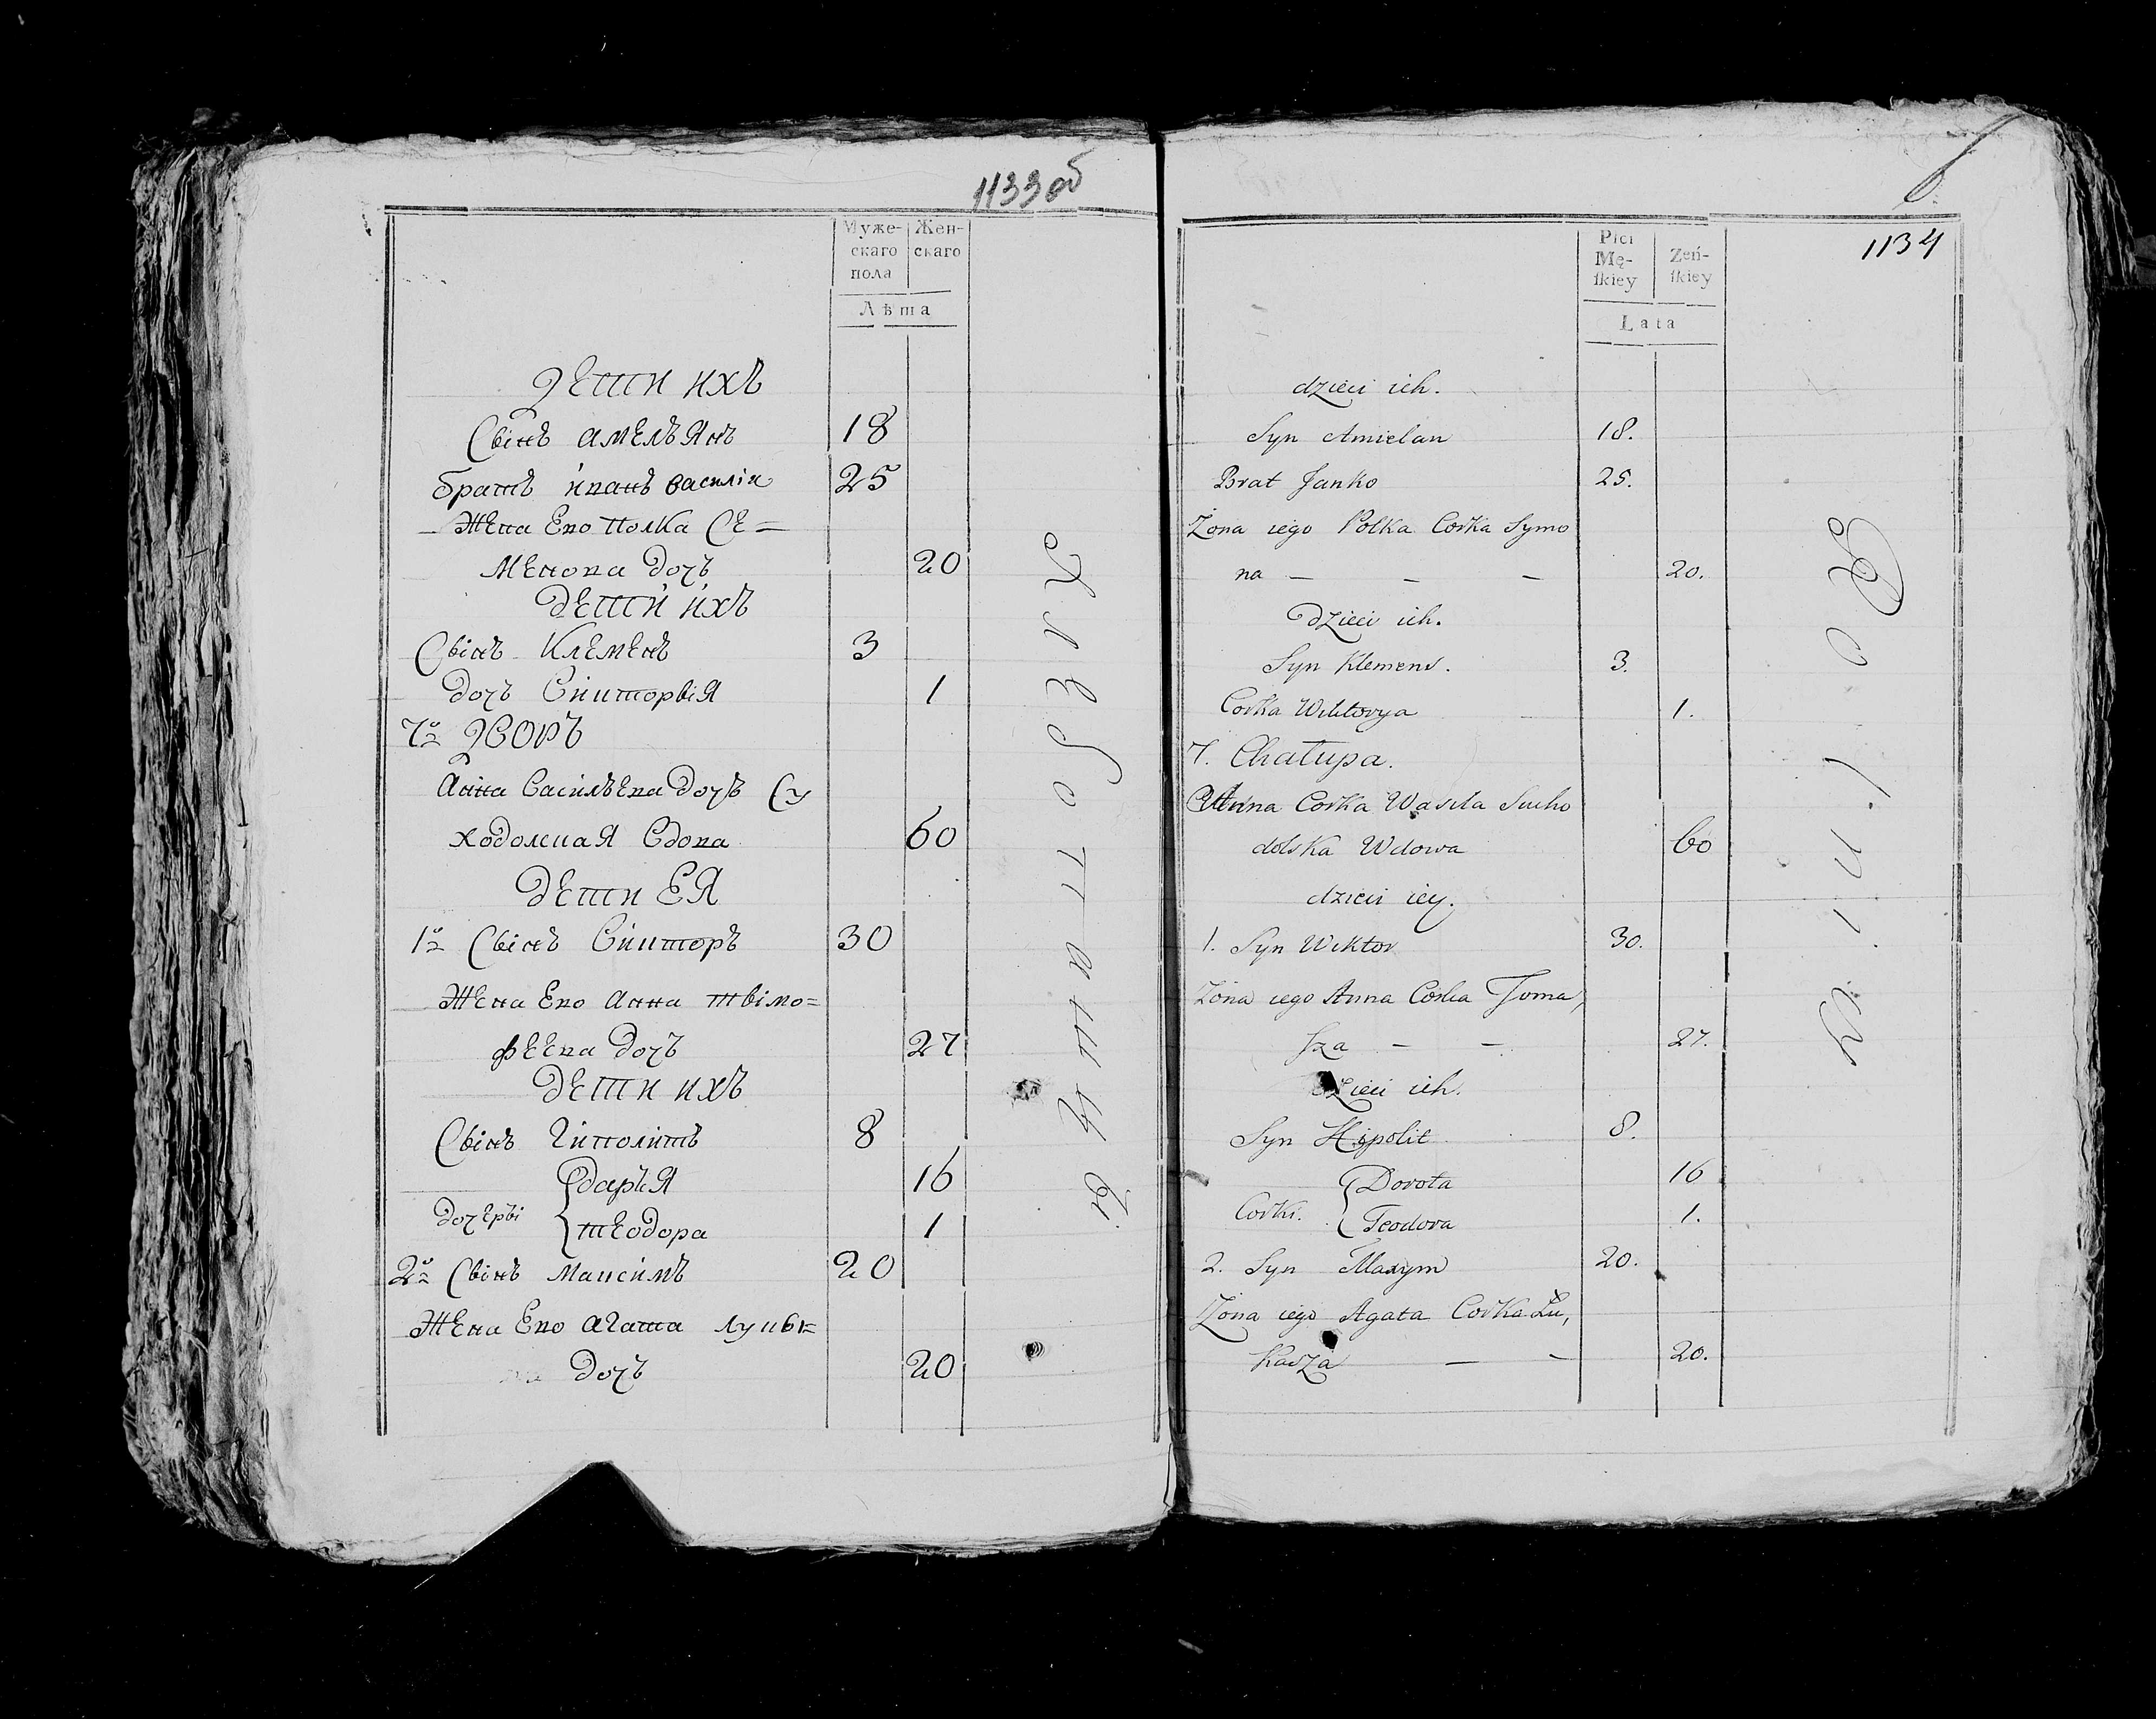 1133об
Муже-
скаго
пола
Жен-
скаго
Лѣта
Дети ихъ
Свінъ Амельянъ 18
братъ иванъ василія 25
Жена Его Полка Се=
менова дочъ 20
дети ихъ
Свінъ Клеменъ 3
дочъ Викторвія 1
7й Дворъ
Анна Василъева дочъ Су
ходолскаЯ Вдова 60
дети ЕЯ
1й Свінъ Викторъ 30
Жена Его Анна твімо=
феева дочъ 27
дети ихъ
Свінъ Гиполитъ 8
дарья 16
дочерві
теодора 1
2й Свінъ Максимъ 20
Жена Его Агата лукѣ=
на дочъ 20
1134
Płci
Mę-
ſkiey
Żeń-
ſkiey
Lata
dzieci ich.
Syn Amielan 18.
Brat Janko 25.
Żona iego Polka Corka Symo
na — — — 20.
Dzieci ich.
Syn Klemens. 3.
Corka Wiktorya 1.
7. Chałupa.
Anna Corka Wasila Sucho
dolska Wdowa 60
dzieci iey.
1. Syn Wiktor 30.
Żona iego Anna Corka Toma,
sza — — 27.
dzieci ich.
Syn Hipolit 8.
Dorota 16
Corki.
Teodora 1.
2. Syn Maxym 20.
Żona iego Agata Corka Łu,
kasza — — 20.